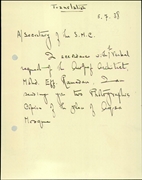 Translation
8.7.28
A/Secretary of the S.M.C.
In accordance with verbal
request of the Chief Architect
Mohd. Eff. Ramadan I am
sending you two Photographic
Copies of the plan of Aqsa
Mosque